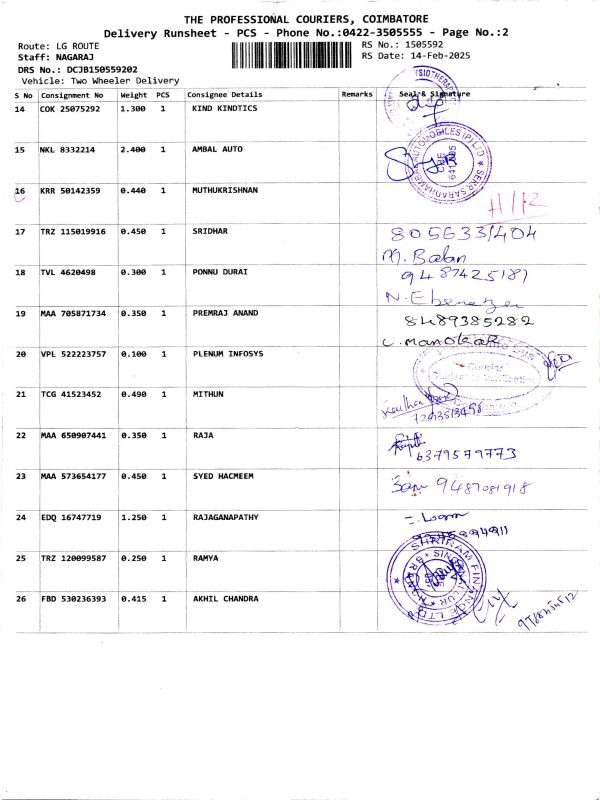 THE PROFESSIONAL COURIERS, COIMBATORE
Delivery Runsheet - PCS - Phone No.:0422-3505555 - Page No.:2
Route: LG ROUTE RS No.: 1505592
Staff: NAGARAJ RS Date: 14-Feb-2025
DRS No.: DCJB150559202
Vehicle: Two Wheeler Delivery
S No Consignment No Weight PCS Consignee Details Remarks Seal & Signature
14 COK 25075292 1.300 1 KIND KINDTICS
15 NKL 8332214 2.400 1 AMBAL AUTO
16 KRR 50142359 0.440 1 MUTHUKRISHNAN
17 TRZ 115019916 0.450 1 SRIDHAR 8056331404
M. Balan
18 TVL 4620498 0.300 1 PONNU DURAI 9487425181
N. Ebenezer
19 MAA 705871734 0.350 1 PREMRAJ ANAND 8489385282
C. Manohar
20 VPL 522223757 0.100 1 PLENUM INFOSYS
21 TCG 41523452 0.490 1 MITHUN
22 MAA 650907441 0.350 1 RAJA 6379579773
23 MAA 573654177 0.450 1 SYED HACMEEM 9487081918
24 EDQ 16747719 1.250 1 RAJAGANAPATHY
25 TRZ 120099587 0.250 1 RAMYA
SHRIRAM FINANCE LTD
26 FBD 530236393 0.415 1 AKHIL CHANDRA